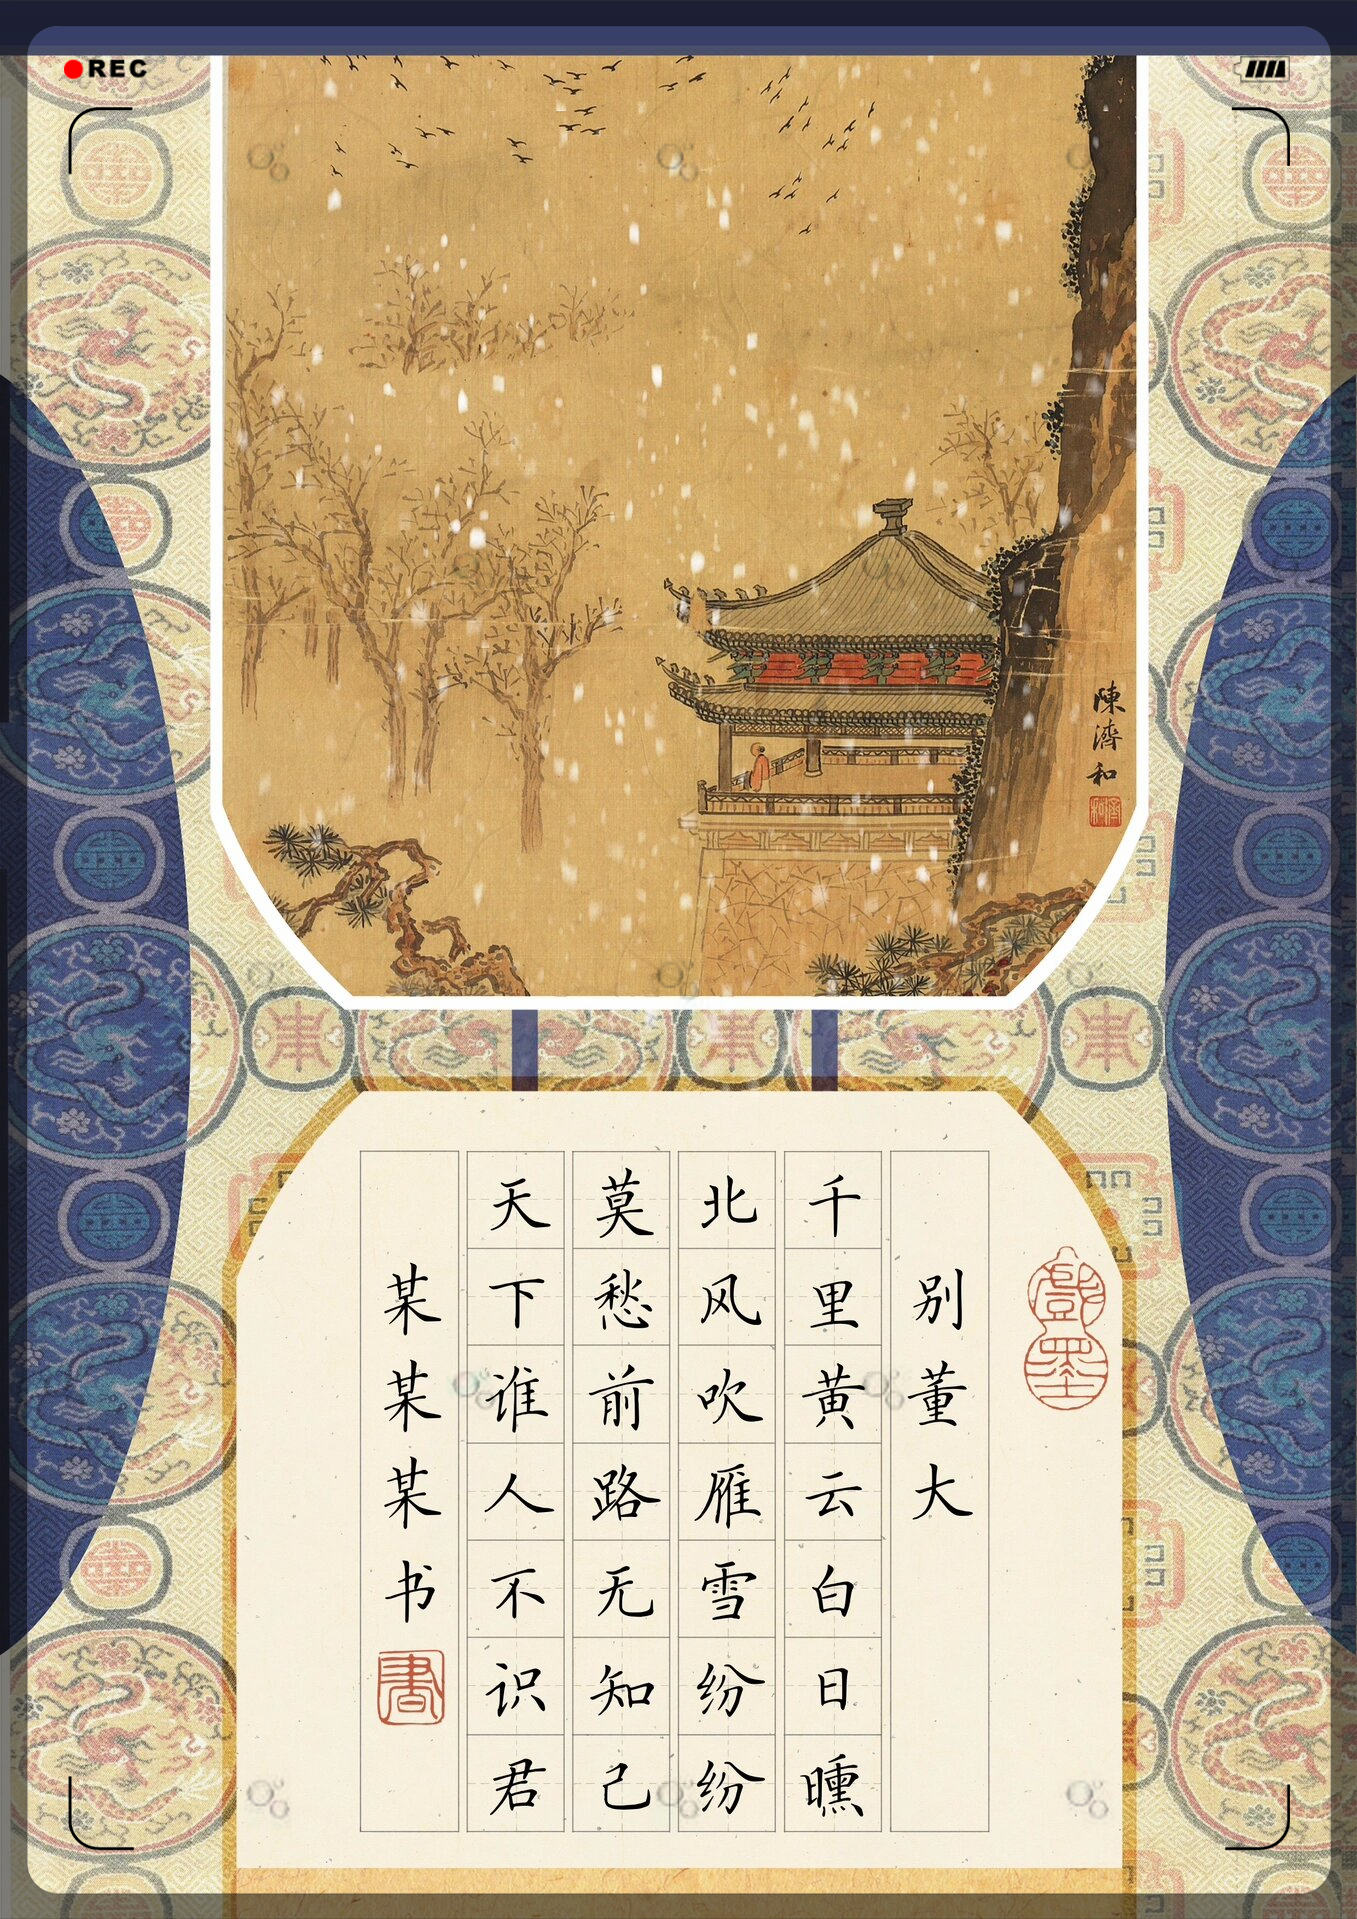 REC
陳濟和
别董大
千里黄云白日曛
北风吹雁雪纷纷
莫愁前路无知己
天下谁人不识君
某某某书
書